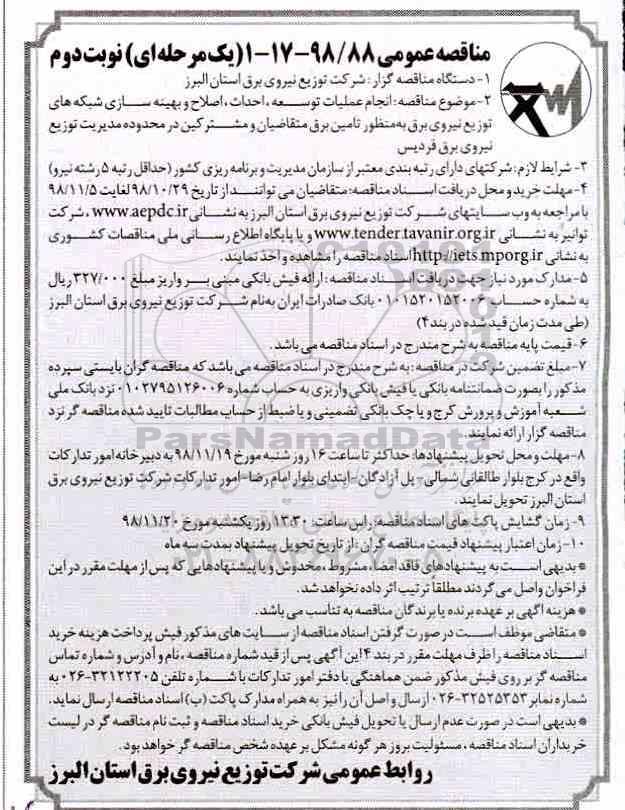 مناقصه عمومی ۹۸/۸۸-۱۷-۱ (یک مرحله ای) نوبت دوم
۱- دستگاه مناقصه گزار: شرکت توزیع نیروی برق استان البرز
۲- موضوع مناقصه: انجام عملیات توسعه، احداث، اصلاح و بهینه سازی شبکه های
توزیع نیروی برق به منظور تامین برق متقاضیان و مشترکین در محدوده مدیریت توزیع
نیروی برق فردیس
۳- شرایط لازم: شرکتهای دارای رتبه بندی معتبر از سازمان مدیریت و برنامه ریزی کشور (حداقل رتبه ۵ رشته نیرو)
۴- مهلت خرید و محل دریافت اسناد مناقصه: متقاضیان می توانند از تاریخ ۹۸/۱۰/۲۹ لغایت ۹۸/۱۱/۵
با مراجعه به وب سایتهای شرکت توزیع نیروی برق استان البرز به نشانی www.aepdc.ir، شرکت
توانیر به نشانی www.tender.tavanir.org.ir و یا پایگاه اطلاع رسانی ملی مناقصات کشوری
به نشانی http://iets.mporg.ir اسناد مناقصه را مشاهده و اخذ نمایند.
۵- مدارک مورد نیاز جهت دریافت اسناد مناقصه: ارائه فیش بانکی مبنی بر واریز مبلغ ۳۲۷/۰۰۰ ریال
به شماره حساب ۰۱۰۱۵۲۰۱۵۲۰۰۶ بانک صادرات ایران به نام شرکت توزیع نیروی برق استان البرز
(طی مدت زمان قید شده در بند ۴)
۶- قیمت پایه مناقصه به شرح مندرج در اسناد مناقصه می باشد.
۷- مبلغ تضمین شرکت در مناقصه: به شرح مندرج در اسناد مناقصه می باشد که مناقصه گران بایستی سپرده
مذکور را بصورت ضمانتنامه بانکی یا فیش بانکی واریزی به حساب شماره ۰۱۰۲۷۹۵۱۲۶۰۰۶ نزد بانک ملی
شعبه آموزش و پرورش کرج و یا چک بانکی تضمینی و یا ضبط از حساب مطالبات تایید شده مناقصه گر نزد
مناقصه گزار ارائه نمایند.
۸- مهلت و محل تحویل پیشنهادها: حداکثر تا ساعت ۱۶ روز شنبه مورخ ۹۸/۱۱/۱۹ به دبیرخانه امور تدارکات
واقع در کرج بلوار طالقانی شمالی- پل آزادگان- ابتدای بلوار امام رضا- امور تدارکات شرکت توزیع نیروی برق
استان البرز تحویل نمایند.
۹- زمان گشایش پاکت های اسناد مناقصه: راس ساعت: ۱۳:۳۰ روز یکشنبه مورخ ۹۸/۱۱/۲۰
۱۰- زمان اعتبار پیشنهاد قیمت مناقصه گران: از تاریخ تحویل پیشنهاد بمدت سه ماه
* بدیهی است به پیشنهادهای فاقد امضا، مشروط، مخدوش و یا پیشنهادهایی که پس از مهلت مقرر در این
فراخوان واصل می گردند مطلقاً ترتیب اثر داده نخواهد شد.
* هزینه آگهی بر عهده برنده یا برندگان مناقصه به تناسب می باشد.
* متقاضی موظف است در صورت گرفتن اسناد مناقصه از سایت های مذکور فیش پرداخت هزینه خرید
اسناد مناقصه را ظرف مهلت مقرر در بند ۴ این آگهی پس از قید شماره مناقصه، نام و آدرس و شماره تماس
مناقصه گر بر روی فیش مذکور ضمن هماهنگی با دفتر امور تدارکات با شماره تلفن ۳۲۱۲۲۲۰۵-۰۲۶ به
شماره نمابر ۳۲۵۲۵۳۵۳-۰۲۶ ارسال و اصل آن را نیز به همراه مدارک پاکت (ب) اسناد مناقصه ارسال نماید.
* بدیهی است در صورت عدم ارسال یا تحویل فیش بانکی خرید اسناد مناقصه و ثبت نام مناقصه گر در لیست
خریداران اسناد مناقصه، مسئولیت بروز هر گونه مشکل بر عهده شخص مناقصه گر خواهد بود.
روابط عمومی شرکت توزیع نیروی برق استان البرز
ParsNamadData